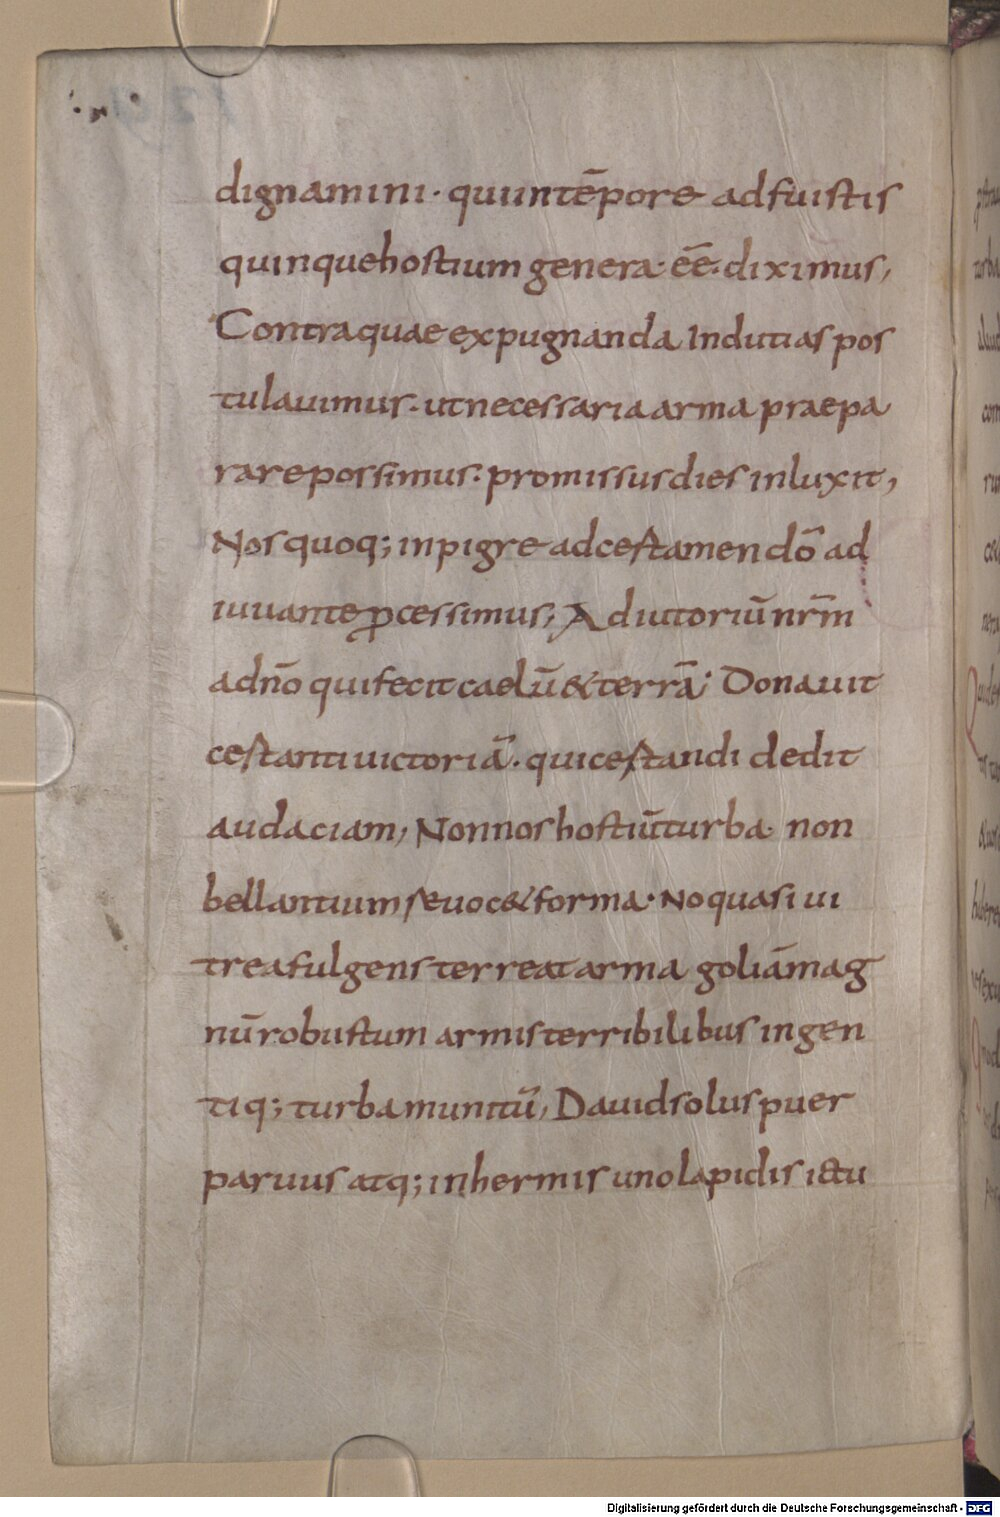 dignamini · quiintēpore adfuistis
quinquehostium genera· eē· diximus,
Contraquae expugnanda Indutias pos
tulauimus · utnecessaria arma praepa
rarepossimus · promissusdies inluxit,
Nosquoq; inpigre adcertamen dō ad
iuuante ꝓcessimus, Adiutoriū nrm̄
adn̄o quifecit caelū & terrā· Donauit
certanti uictoriā · quicertandi dedit
audaciam, Nonnos hostiūturba non
bellantium seuoc& forma · Noquasi ui
treafulgens terreat arma goliāmag
nū robustum armisterribilibus ingen
tiq; turbamunitū, Dauidsolus puer
paruus atq; inhermis unolapidis ictu
Digitalisierung gefördert durch die Deutsche Forschungsgemeinschaft - DFG